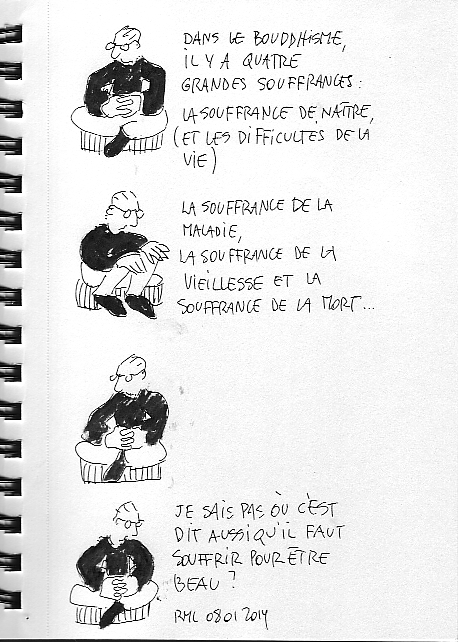 DANS LE BOUDDHISME,
IL Y A QUATRE
GRANDES SOUFFRANCES :
LA SOUFFRANCE DE NAÎTRE,
(ET LES DIFFICULTÉS DE LA
VIE)
LA SOUFFRANCE DE LA
MALADIE,
LA SOUFFRANCE DE LA
VIEILLESSE ET LA
SOUFFRANCE DE LA MORT...
JE SAIS PAS OÙ C'EST
DIT AUSSI QU'IL FAUT
SOUFFRIR POUR ÊTRE
BEAU ?
RML 08 01 2014